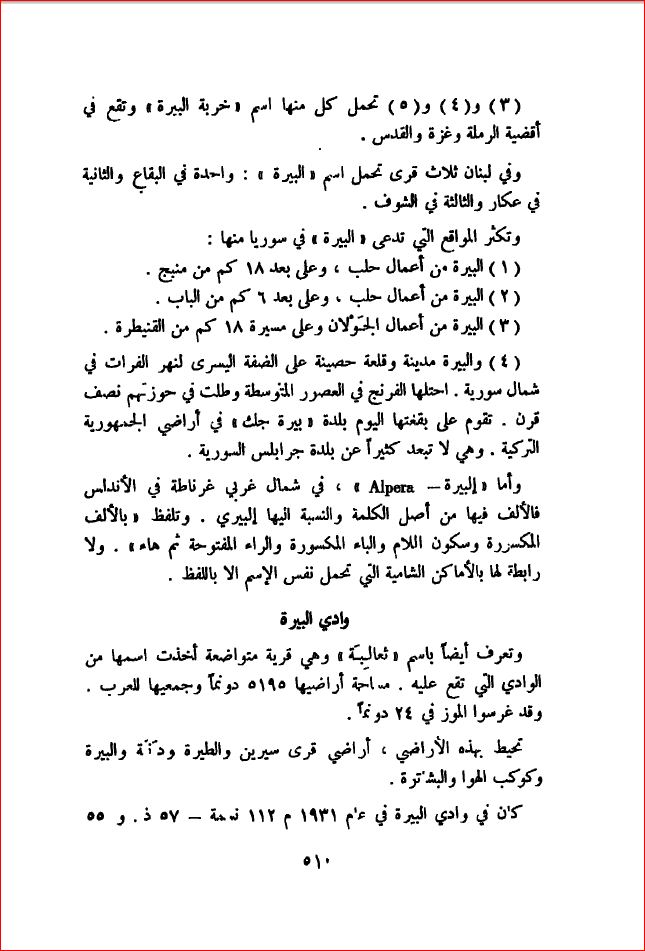 (٣) و(٤) و(٥) تحمل كل منها اسم «خربة البيرة» وتقع في
أقضية الرملة وغزة والقدس .
وفي لبنان ثلاث قرى تحمل اسم «البيرة» : واحدة في البقاع والثانية
في عكار والثالثة في الشوف .
وتكثر المواقع التي تدعى «البيرة» في سوريا منها :
(١) البيرة من أعمال حلب ، وعلى بعد ١٨ كم من منبج .
(٢) البيرة من أعمال حلب ، وعلى بعد ٦ كم من الباب .
(٣) البيرة من أعمال الجَوْلان وعلى مسيرة ١٨ كم من القنيطرة .
(٤) والبيرة مدينة وقلعة حصينة على الضفة اليسرى لنهر الفرات في
شمال سورية . احتلها الفرنج في العصور المتوسطة وظلت في حوزتهم نصف
قرن . تقوم على بقعتها اليوم بلدة «بيرة جك» في أراضي الجمهورية
التركية . وهي لا تبعد كثيراً عن بلدة جرابلس السورية .
وأما «إلبيرة – Alpera» ، في شمال غربي غرناطة في الأندلس
فالألف فيها من أصل الكلمة والنسبة اليها إلبيري . وتلفظ «بالألف
المكسررة وسكون اللام والباء المكسورة والراء المفتوحة ثم هاء» . ولا
رابطة لها بالأماكن الشامية التي تحمل نفس الإسم الا باللفظ .
وادي البيرة
وتعرف أيضاً باسم «ثعالبِـَة» وهي قرية متواضعة أخذت اسمها من
الوادي التي تقع عليه . مساحة أراضيها ٥١٩٥ دونماً وجمعيها للعرب .
وقد غرسوا الموز في ٢٤ دونماً .
تحيط بهذه الأراضي ، أراضي قرى سيرين والطيرة ودَنّة والبيرة
وكوكب الهوا والبشاترة .
كان في وادي البيرة في عام ١٩٣١ م ١١٢ نسمة – ٥٧ ذ. و ٥٥
٥١٠